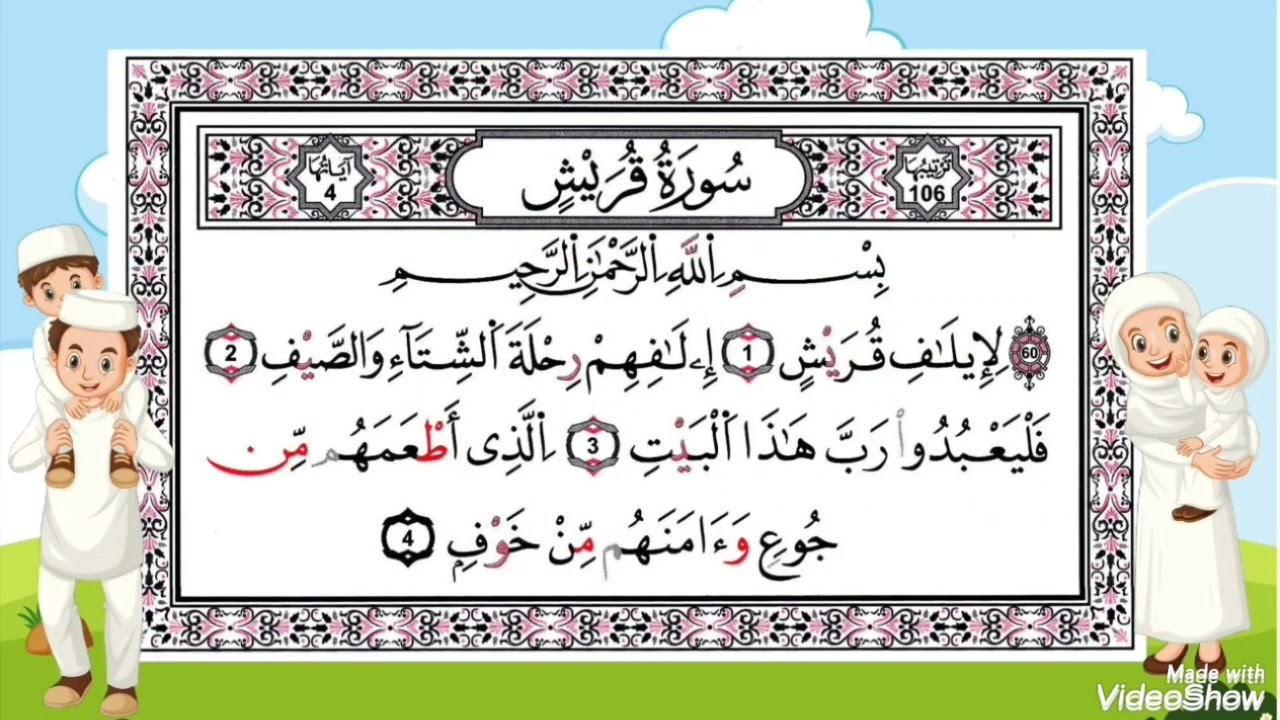 ترتيبها 106
سُورَةُ قُرَيْشٍ
آياتها 4
بِسْمِ اِ۬للَّهِ اِ۬لرَّحْمَٰنِ اِ۬لرَّحِيمِ
60 لِإِيلَٰفِ قُرَيْشٍ 1 إِۦلَٰفِهِمْ رِحْلَةَ اَ۬لشِّتَآءِ وَالصَّيْفِ 2
فَلْيَعْبُدُواْ رَبَّ هَٰذَا اَ۬لْبَيْتِ 3 اِ۬لَّذِى أَطْعَمَهُم مِّن
جُوعٍ وَءَامَنَهُم مِّنْ خَوْفٍ 4
Made with
VideoShow